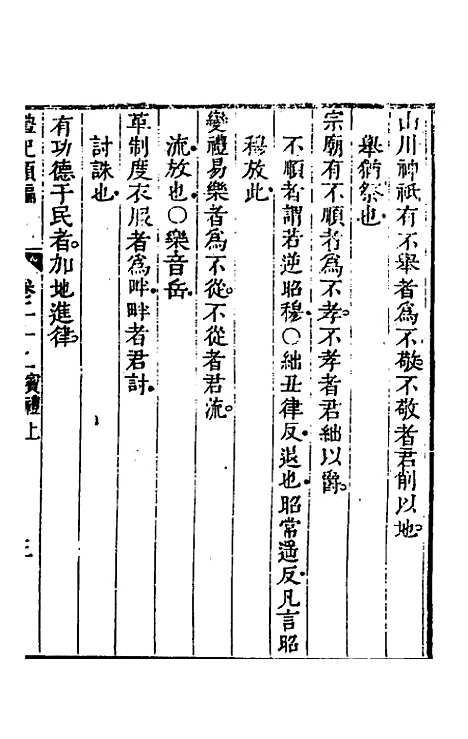 山川神祇有不舉者為不敬不敬者君削以地。
舉猶祭也
宗廟有不順者為不孝。不孝者君絀以爵。
不順者謂若逆昭穆。〇絀丑律反。退也。昭常遥反。凡言昭
穆放此。
變禮易樂者為不從。不從者君流。
流放也〇樂音岳。
革制度衣服者為畔。畔者君討。
討誅也。
有功德于民者。加地進律。
禮記類編 卷二十 賓禮上 三